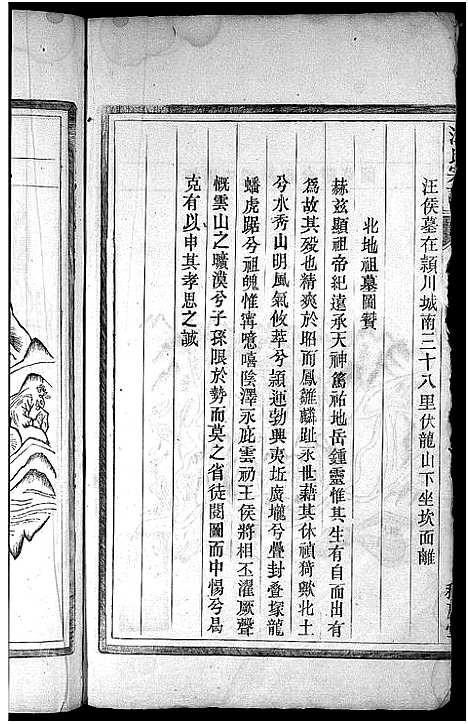 汪侯墓在潁川城南三十八里伏龍山下坐坎面離
北地祖墓圖贊
赫兹顯祖帝紀遠承天神篤祐地岳鍾靈惟其生有自而出有
為故其殁也精爽於昭而鳳雛麟趾永世藉其休禎猗歟北土
兮水秀山明風氣攸萃兮頴運勃興夷坵廣壠兮疊封叠塚龍
蟠虎踞兮祖魄惟寗噫嘻陰澤永庇雲礽王侯將相丕濯厥聲
慨雲山之曠漠兮子孫限於勢而莫之省徒閱圖而中惕兮曷
克有以申其孝思之誠